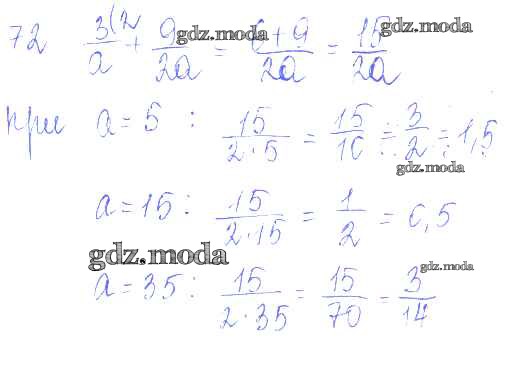 72 3(2/a + 9/2a = 6+9/2a = 15/2a
gdz.moda gdz.moda
при a=5 : 15/2·5 = 15/10 = 3/2 = 1,5
gdz.moda
a=15 : 15/2·15 = 1/2 = 0,5
gdz.moda
gdz.moda
a=35 : 15/2·35 = 15/70 = 3/14